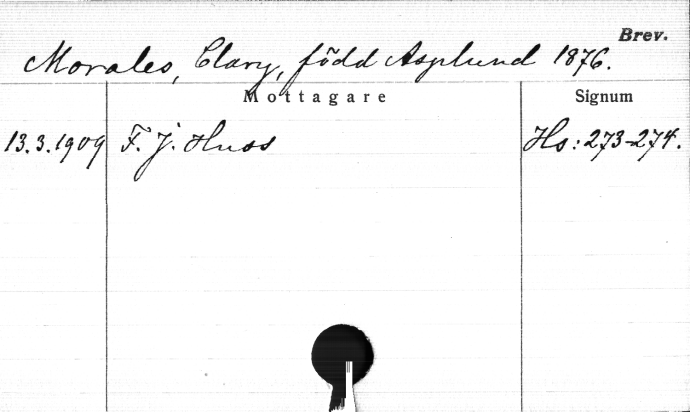 Brev.
Morales, Clary, född Asplund 1876.
Mottagare Signum
13.3.1909 F. J. Huss Hs: 273-274.